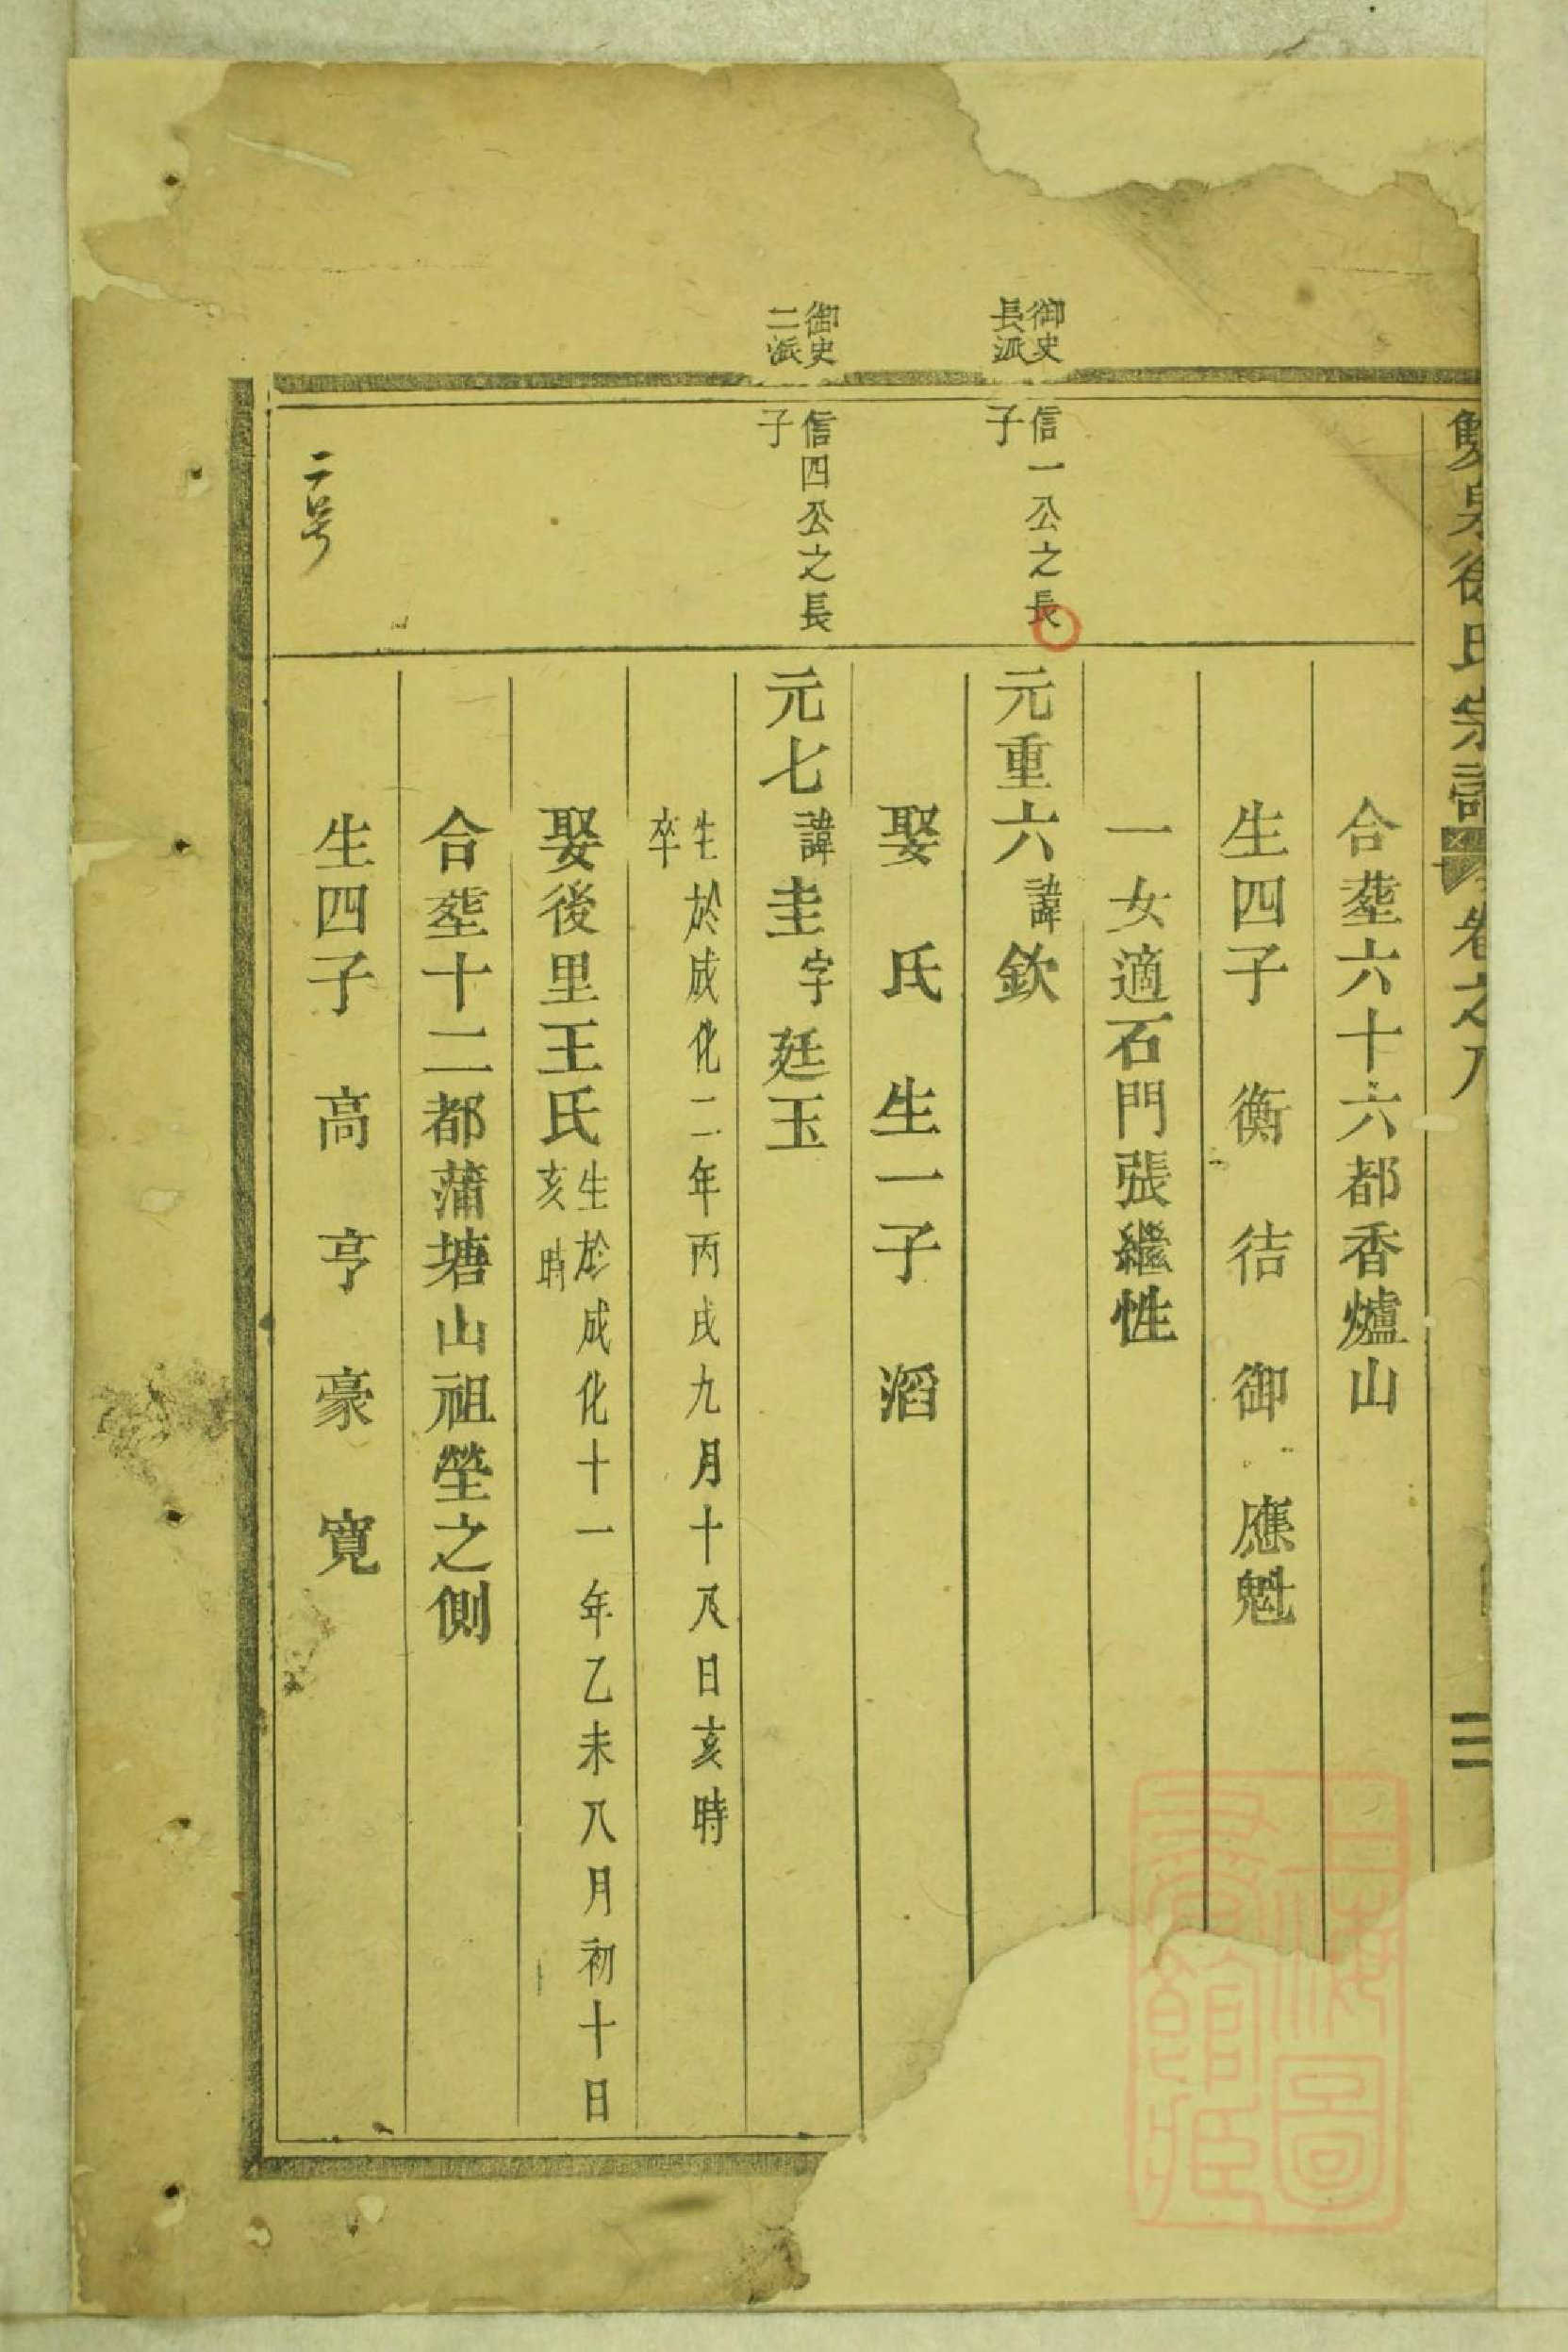 雙泉徐氏宗譜 卷之八 二
合塟六十六都香爐山
生四子 衡 㣟 御 應魁
一女適石門張繼性
御史長派
信一公之長子
元重六諱欽
娶 氏 生一子 滔
御史二派
信四公之長子
元七諱圭字廷玉
生於成化二年丙戌九月十八日亥時
卒
娶後里王氏生於成化十一年乙未八月初十日亥時
合塟十二都蒲塘山祖塋之側
生四子 高 亨 豪 寬
二号
上海圖書館藏